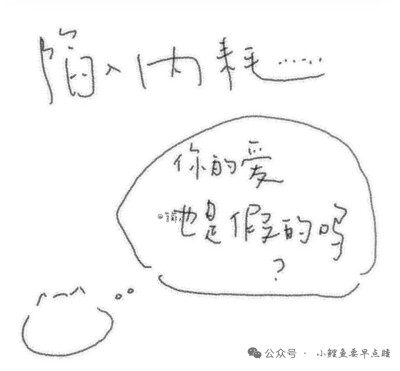 陷入内耗……
你的爱
也是假的吗
?
公众号 · 小鲤鱼要早点睡